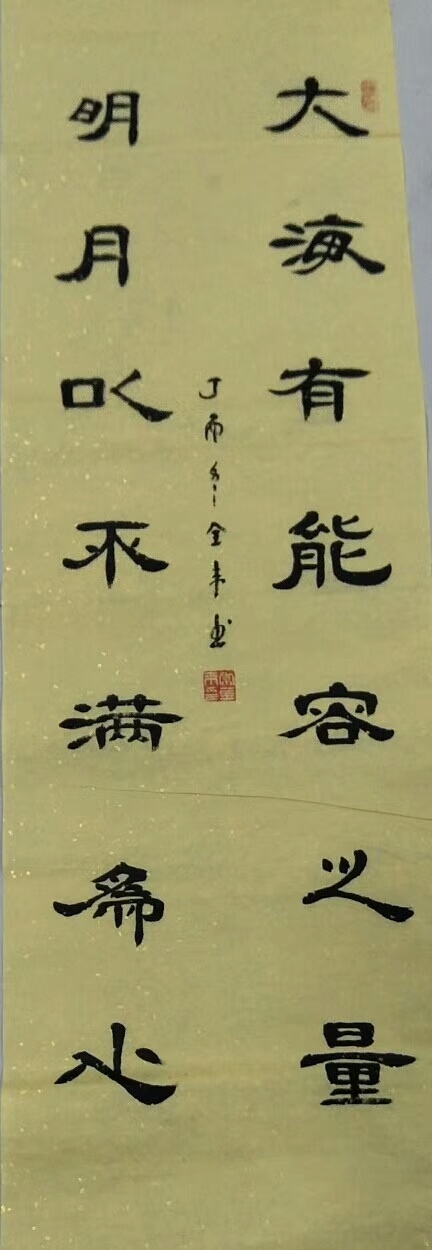 大海有能容之量
明月以不满為心
丁酉年全韦書